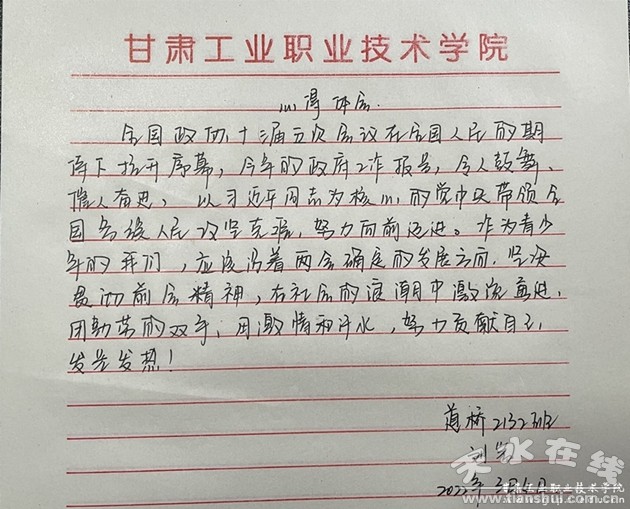 甘肃工业职业技术学院
心得体会
全国政协十三届五次会议在全国人民的期
待下拉开序幕，今年的政府工作报告，令人鼓舞、
催人奋进，以习近平同志为核心的党中央带领全
国各族人民攻坚克难，努力向前迈进。作为青少
年的我们，应该沿着两会确定的发展方向，坚决
贯彻前会精神，在社会的浪潮中激流勇进，
用勤劳的双手，用激情和汗水，努力贡献自己，
发光发热！
道桥2132班
刘
2022年3月6日
天水在线
甘肃工业职业技术学院
www.tianshui.com.cn